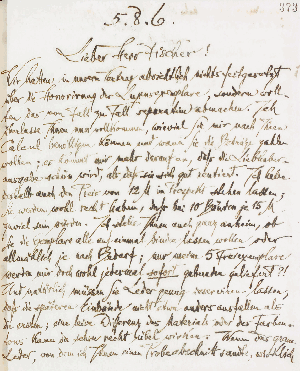 373
5.8.6.
Lieber Herr Fischer!
Wir hatten in unserm Vertrag absichtlich nichts festgesetzt
über die Honorirung der Luxusexemplare, sondern woll-
ten das von Fall zu Fall separatim abmachen. Ich
überlasse Ihnen nun vollkommen, wieviel Sie mir nach Ihrem
Calcul bewilligen können und wann Sie die Beträge zahlen
wollen; es kommt mir mehr darauf an, daß die Liebhaber-
ausgabe schön wird, als daß sie sich gut rentiert. Ich habe
auch den Preis von 12 M im Prospekt stehen lassen;
Sie werden wohl recht haben, daß bei 10 Bänden je 15 M
zuviel sein würden. Ich stelle Ihnen auch ganz anheim, ob
Sie die Exemplare alle auf einmal binden lassen wollen oder
allmählich je nach Bedarf; nur meine 5 Freiexemplare
werden mir doch wohl jedesmal sofort gebunden geliefert?!
Und natürlich müssen Sie Leder genug reservieren lassen,
daß die späteren Einbände nicht etwa anders ausfallen als
die ersten; eine kleine Differenz des Materials oder des Farben-
tons kann da schon recht übel wirken. Wenn das graue
Leder, von dem ich Ihnen einen Probeabschnitt sandte, wirklich